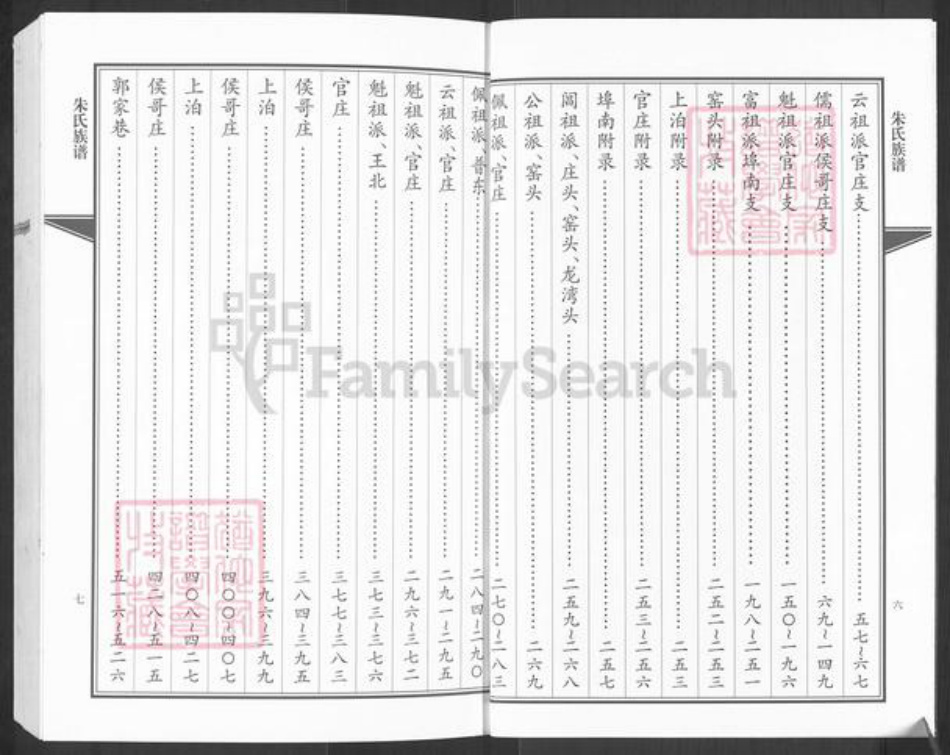 朱氏族谱
云祖派官庄支 五七~六七
儒祖派侯哥庄支 六九~一四九
魁祖派官庄支 一五〇~一九六
富祖派埠南支 一九八~二五一
窑头附录 二五二~二五三
上泊附录 二五三
官庄附录 二五三~二五六
埠南附录 二五七
闾祖派、庄头、窑头、龙湾头 二五九~二六八
公祖派、窑头 二六九
佩祖派、官庄 二七〇~二八三
六
佩祖派、普东 二八四~二九〇
云祖派、官庄 二九一~二九五
魁祖派、官庄 二九六~三七二
魁祖派、王北 三七三~三七六
官庄 三七七~三八三
侯哥庄 三八四~三九五
上泊 三九六~三九九
侯哥庄 四〇〇~四〇七
上泊 四〇八~四二七
侯哥庄 四二八~五一五
郭家巷 五一六~五二六
朱氏族谱
七
FamilySearch